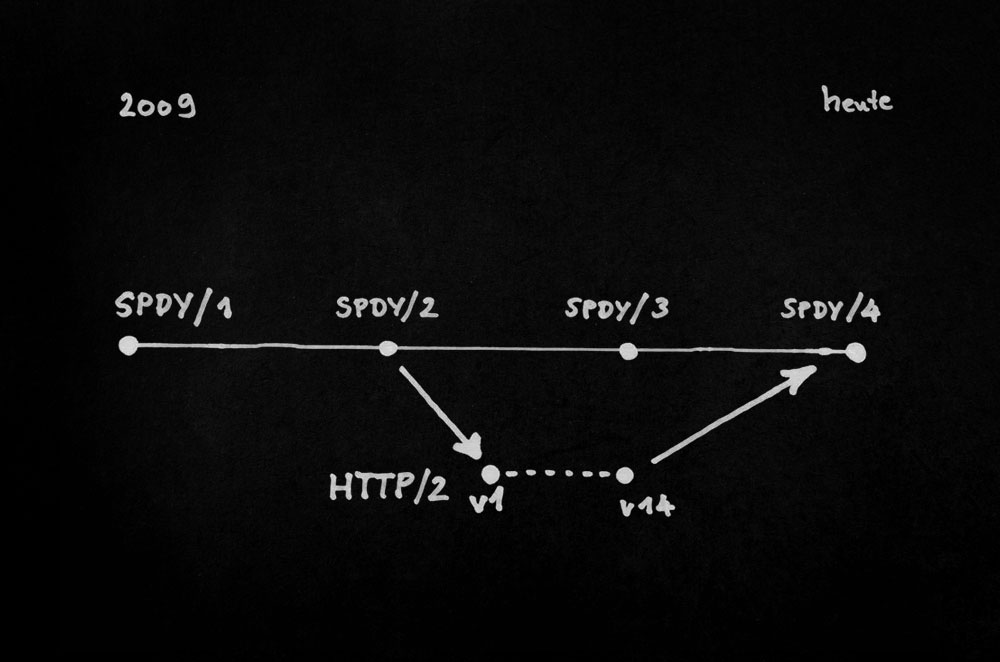 2009
heute
SPDY/1
SPDY/2
SPDY/3
SPDY/4
HTTP/2
v1
v14